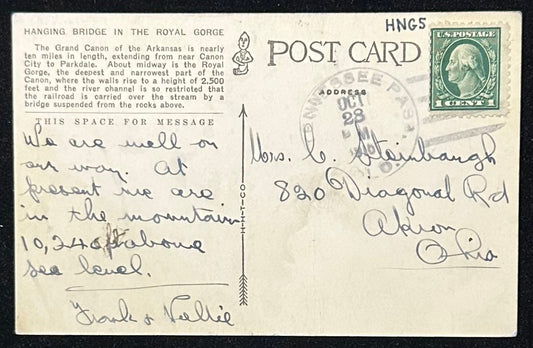 HANGING BRIDGE IN THE ROYAL GORGE
The Grand Canon of the Arkansas is nearly
ten miles in length, extending from near Canon
City to Parkdale. About midway is the Royal
Gorge, the deepest and narrowest part of the
Canon, where the walls rise to a height of 2,500
feet and the river channel is so restricted that
the railroad is carried over the stream by a
bridge suspended from the rocks above.
THIS SPACE FOR MESSAGE
We are well on
our way. At
present we are
in the mountain
10,240 ft above
sea level.
Frank & Nellie
H-H-T-CO
POST CARD
ADDRESS
HNG5
U.S. POSTAGE
1 CENT 1
TENNESSEE PASS
OCT
23
Mrs. C. Steinbaugh
820 Diagonal Rd
Akron
Ohio